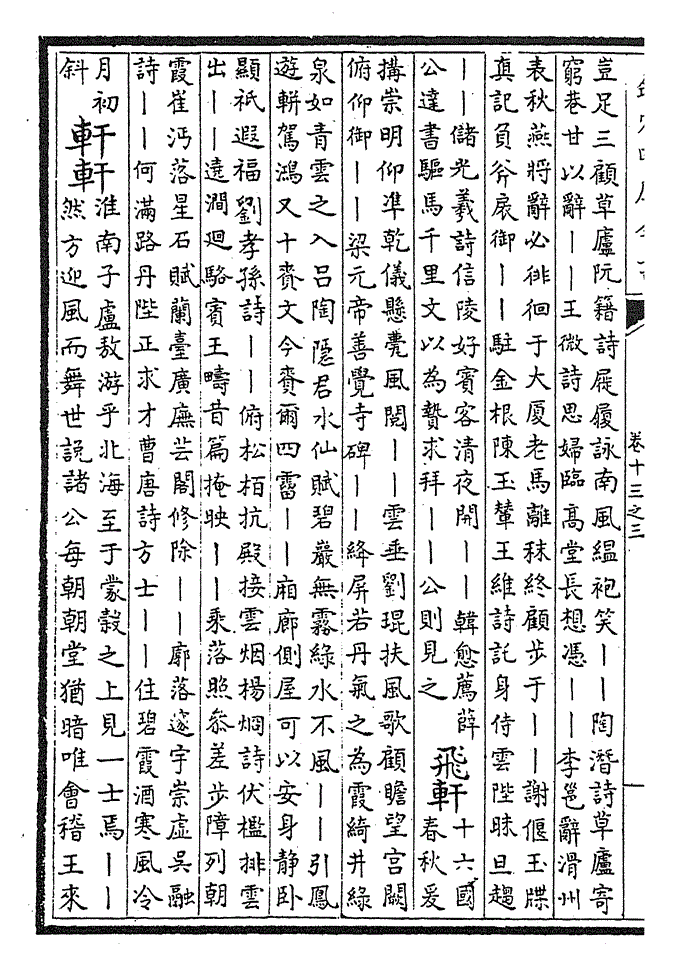 豈足三顧草廬阮籍詩屣履詠南風緼袍笑——陶潛詩草廬寄
窮巷甘以辭——王微詩思婦臨髙堂長想憑——李邕辭滑州
表秋燕將辭必徘徊于大厦老馬離秣終顧步于——謝偃玉牒
真記負斧扆御——駐金根陳玉輦王維詩託身侍雲陛昧旦趨
——儲光羲詩信陵好賓客清夜開——韓愈薦薛
公達書驅馬千里文以為贄求拜——公則見之
飛軒
十六國
春秋爰
搆崇明仰凖乾儀懸甍風閲——雲垂劉琨扶風歌顧瞻望宫闕
俯仰御——梁元帝善覺寺碑——絳屏若丹氣之為霞綺井緑
泉如青雲之入吕陶隱君水仙賦碧巖無霧緑水不風——引鳳
遊軿駕鴻又十賚文今賚爾四霤——廂廊側屋可以安身静卧
顯祇遐福劉孝孫詩——俯松栢抗殿接雲烟楊炯詩伏檻排雲
出——遶澗迴駱賓王疇昔篇掩映——乘落照叅差步障列朝
霞崔沔落星石賦蘭臺廣廡芸閣修除——廓落邃宇崇虚吳融
詩——何滿路丹陛正求才曹唐詩方士——住碧霞酒寒風冷
月初
斜
軒軒
淮南子盧敖游乎北海至于蒙榖之上見一士焉——
然方迎風而舞世説諸公每朝朝堂猶暗唯會稽王來
卷十三之三